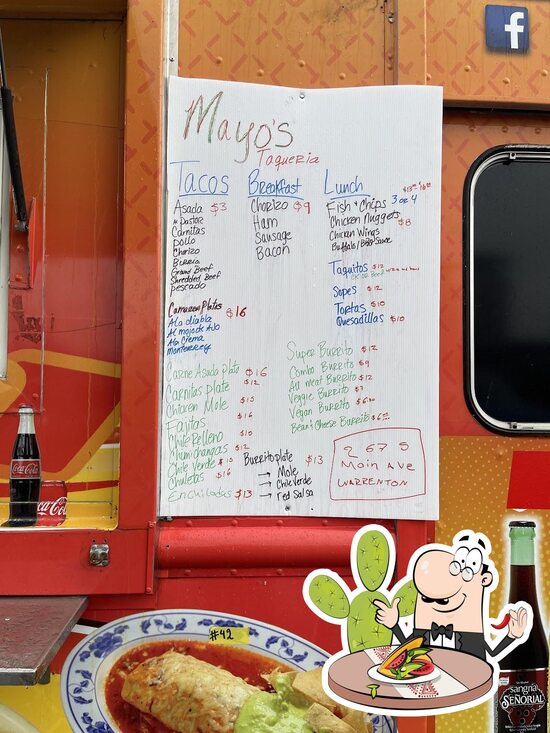 Mayo's
Taqueria
Tacos
Asada $3
Al Pastor
Carnitas
pollo
Chorizo
Birria
Ground Beef
Shredded Beef
pescado
Camaron Plates $16
A la diabla
Al mojo de Ajo
A la Crema
Monterrey
Breakfast
Chorizo $9
Ham
Sausage
Bacon
Lunch
Fish & Chips 3 or 4
Chicken Nuggets $8
Chicken Wings
Buffalo/BBQ Sauce
Taquitos $12
Sopes $12
Tortas $10
Quesadillas $10
Carne Asada Plate $16
Carnitas Plate $12
Chicken Mole $15
Fajitas $16
Chile Relleno $10
Chimichangas $12
Chile Verde $15
Chuletas $16
Enchiladas $13
Super Burrito $12
Combo Burrito $9
All Meat Burrito $12
Veggie Burrito $7
Vegan Burrito
Bean & Cheese Burrito
Burrito plate $13
→ Mole
→ Chile Verde
→ red Salsa
267 S
Main Ave
WARRENTON
f
Coca-Cola
Coca-Cola
#42
sangria
SEÑORIAL